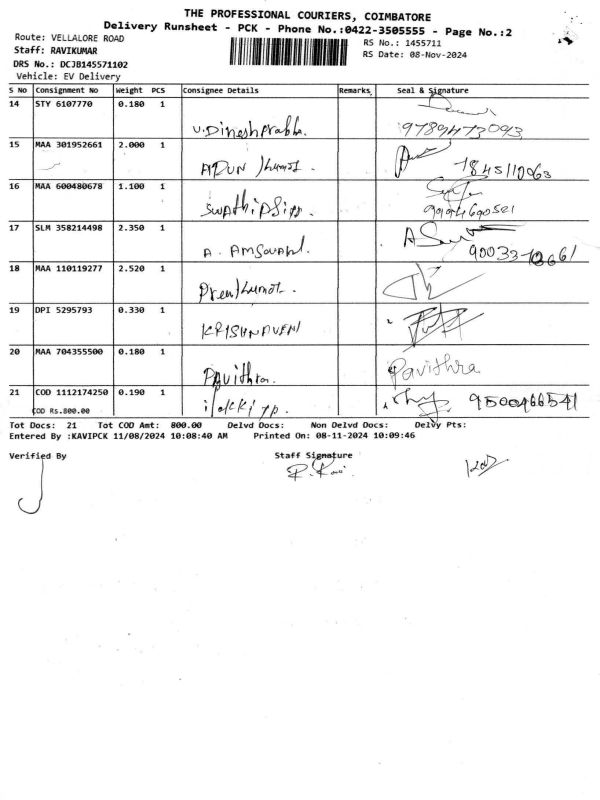 THE PROFESSIONAL COURIERS, COIMBATORE
Delivery Runsheet - PCK - Phone No.:0422-3505555 - Page No.:2
Route: VELLALORE ROAD
RS No.: 1455711
Staff: RAVIKUMAR
RS Date: 08-Nov-2024
DRS No.: DCJB145571102
Vehicle: EV Delivery
S No Consignment No Weight PCS Consignee Details Remarks Seal & Signature
14 STY 6107770 0.180 1
V. Dineshprabhu. 9789473093
15 MAA 301952661 2.000 1
ARUN kumar. 7845110063
16 MAA 600480678 1.100 1
9994690521
17 SLM 358214498 2.350 1
A.
18 MAA 110119277 2.520 1
Premkumar.
19 DPI 5295793 0.330 1
KRISHNAVENI
20 MAA 704355500 0.180 1
Pavithra. Pavithra
21 COD 1112174250 0.190 1
9500466541
COD Rs.800.00
Tot Docs: 21 Tot COD Amt: 800.00 Delvd Docs: Non Delvd Docs: Delvy Pts:
Entered By :KAVIPCK 11/08/2024 10:08:40 AM Printed On: 08-11-2024 10:09:46
Verified By Staff Signature
R. Ravi